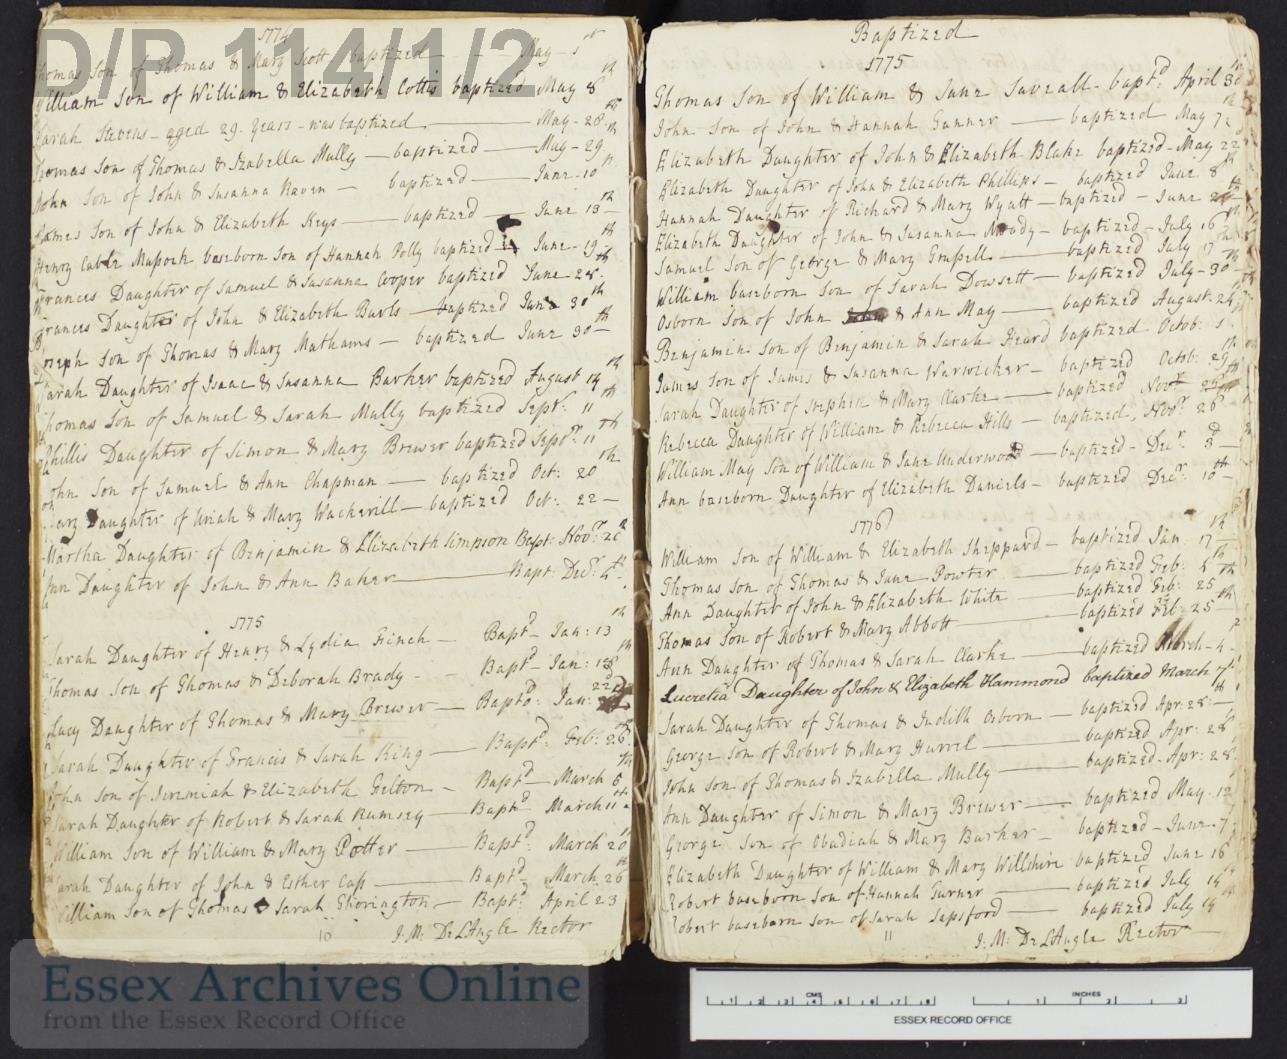 D/P 114/1/2
1774
Thomas Son of Thomas & Mary Scott baptized — May - 1st
William Son of William & Elizabeth Cottis baptized May 8th
Sarah Stevens - aged 29 Years - was baptized — May - 28th
Thomas Son of Thomas & Izabella Mully — baptized — May - 29th
John Son of John & Susanna Raven — baptized — June - 10th
James Son of John & Elizabeth Keys — baptized — June 13th
Henry baseborn Son of Hannah Polly baptized June - 19th
Frances Daughter of Samuel & Susanna Cooper baptized June - 28th
Frances Daughter of John & Elizabeth Burls — baptized June 30th
Joseph Son of Thomas & Mary Mathams — baptized June 30th
Sarah Daughter of Isaac & Susanna Barker baptized August 14th
Thomas Son of Samuel & Sarah Mully baptized Sept: 11th
Phillis Daughter of Simon & Mary Brewer baptized Sepbr. 11th
John Son of Samuel & Ann Chapman — baptized Oct: 20th
Mary Daughter of Uriah & Mary Wackerill — baptized Oct: 22 —
Martha Daughter of Benjamin & Elizabeth Simpson Bapt: Novr.
Ann Daughter of John & Ann Baker — Bapt: Decr: 4th
1775
Sarah Daughter of Henry & Lydia Finch — Baptd — Jan: 13th
Thomas Son of Thomas & Deborah Brady - Baptd — Jan:
Lucy Daughter of Thomas & Mary Brewer — Baptd: Jan: 22d
Sarah Daughter of Francis & Sarah King — Baptd: Feb: 26th
John Son of Jeremiah & Elizabeth Felton — Baptd — March 5th
Sarah Daughter of Robert & Sarah Rumsey — Baptd — March 11th
William Son of William & Mary Potter — Baptd: March 20th
Sarah Daughter of John & Esther Cass — Baptd March 26th
William Son of Thomas & Sarah Thorington — Baptd: April 23
10
J: M: De L'Angle Rector
Baptized
1775
Thomas Son of William & Jane Saveall - baptd: April 30th
John Son of John & Hannah Gunner — baptized May 7th
Elizabeth Daughter of John & Elizabeth Blake baptized - May 22d
Elizabeth Daughter of John & Elizabeth Phillips — baptized June 8th
Hannah Daughter of Richard & Mary Wyatt — baptized — June
Elizabeth Daughter of John & Susanna Moody — baptized — July 16th
Samuel Son of George & Mary Grapsell — baptized July 17th
William baseborn Son of Sarah Dowsett — baptized July - 30th
Osborn Son of John & Ann May — baptized August 24th
Benjamin Son of Benjamin & Sarah Heard baptized - Octob: 1st
James Son of James & Susanna Warwicker — baptized Octob: 29th
Sarah Daughter of Stephen & Mary Clarke — baptized Novr 25th
Rebecca Daughter of William & Rebecca Hills — baptized, Novr. 26
William May Son of William & Jane Underwood — baptized - Decr. 3d
Ann baseborn Daughter of Elizabeth Daniels — baptized Decr. 10th
1776
William Son of William & Elizabeth Sheppard — baptized Jan: 17th
Thomas Son of Thomas & Jane Powter — baptized Feb: 4th
Ann Daughter of John & Elizabeth White — baptized Feb: 25th
Thomas Son of Robert & Mary Abbott — baptized Feb: 25th
Ann Daughter of Thomas & Sarah Clarke — baptized March - 4
Lucretia Daughter of John & Elizabeth Hammond baptized March 17th
Sarah Daughter of Thomas & Judith Osborn — baptized Apr: 28th
George Son of Robert & Mary Harvel — baptized Apr: 28
John Son of Thomas & Izabella Mully — baptized - Apr: 28
Ann Daughter of Simon & Mary Brewer — baptized May - 12
George Son of Obadiah & Mary Barker — baptized — June - 7
Elizabeth Daughter of William & Mary Willshire baptized June 16
Robert baseborn Son of Hannah Turner — baptized July 14
Robert baseborn Son of Sarah Sapsford — baptized July 14
11
J: M: De L'Angle Rector
Essex Archives Online
from the Essex Record Office
CMS
1 2 3 4 5 6 7 8
INCHES
1 2 3
ESSEX RECORD OFFICE